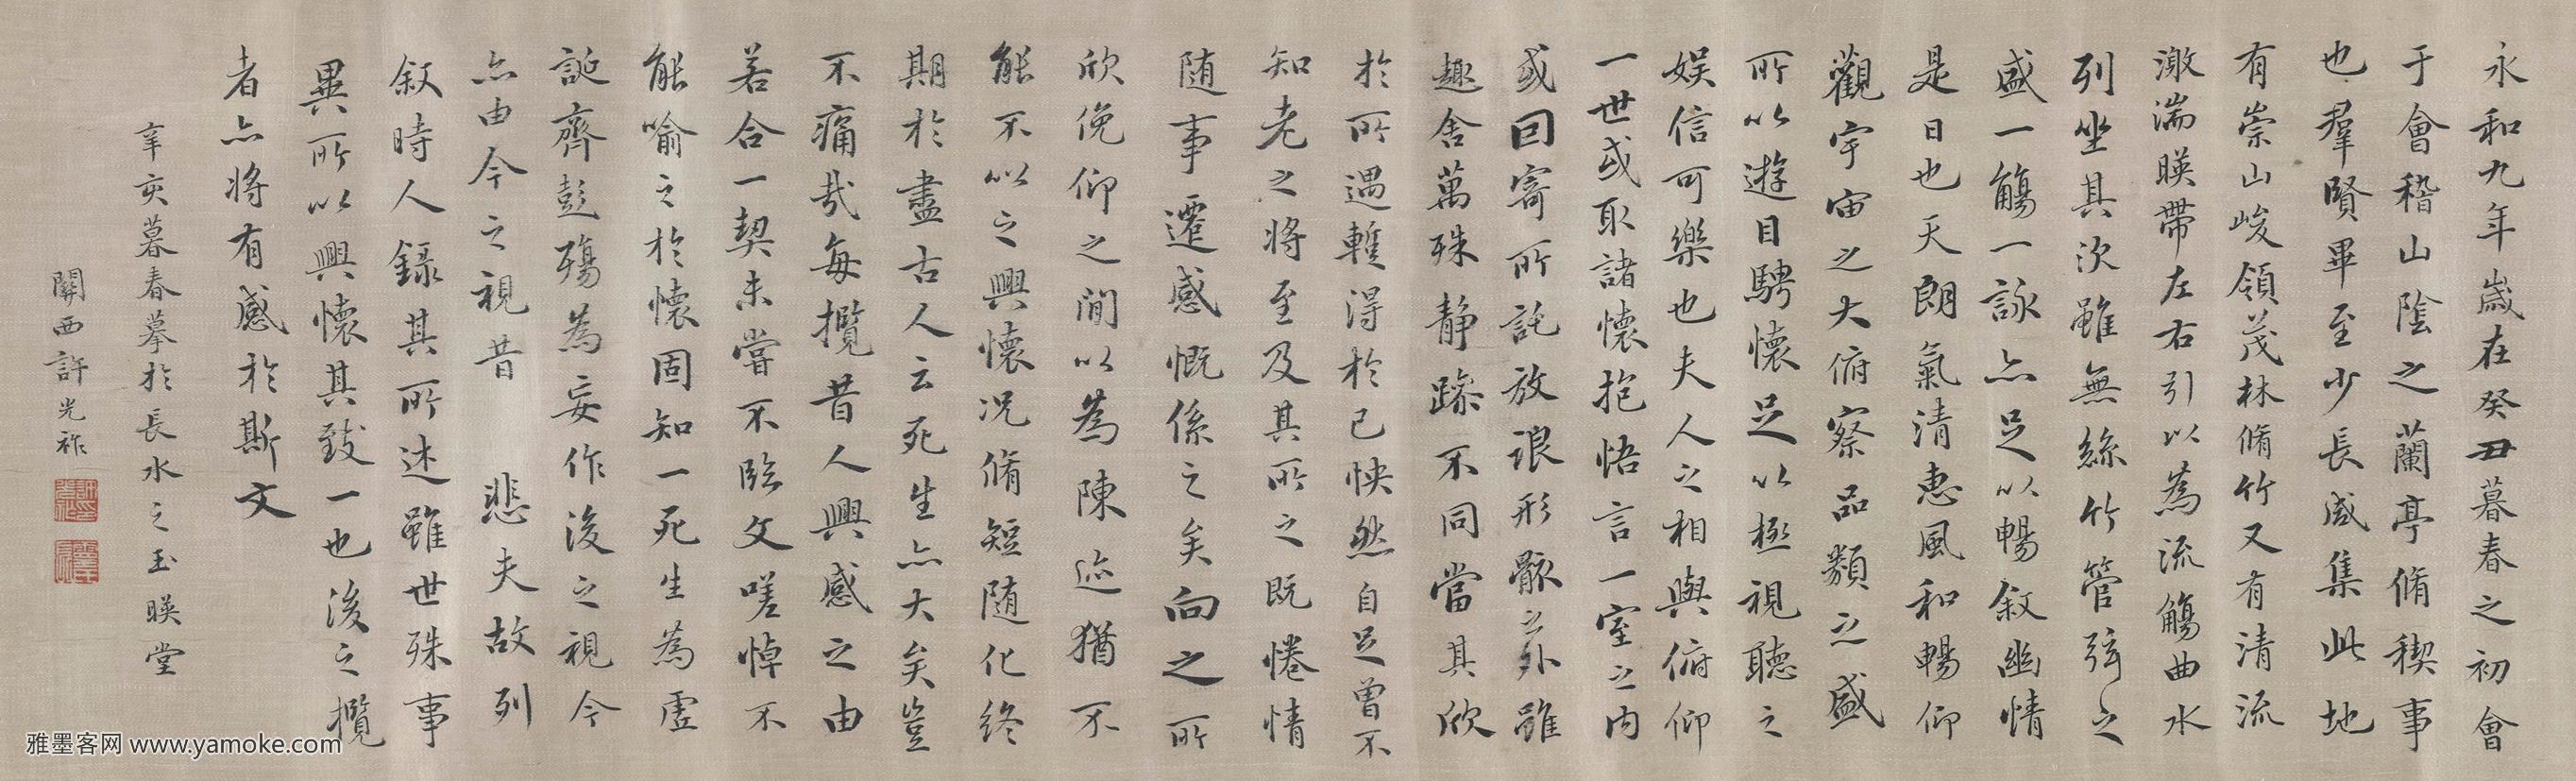 永和九年歲在癸丑暮春之初會
于會稽山陰之蘭亭脩稧事
也羣賢畢至少長咸集此地
有崇山峻領茂林脩竹又有清流
激湍暎帶左右引以為流觴曲水
列坐其次雖無絲竹管弦之
盛一觴一詠亦足以暢叙幽情
是日也天朗氣清惠風和暢仰
觀宇宙之大俯察品類之盛
所以遊目騁懷足以極視聽之
娛信可樂也夫人之相與俯仰
一世或取諸懷抱悟言一室之內
或因寄所託放浪形骸之外雖
趣舍萬殊静躁不同當其欣
於所遇蹔得於己怏然自足曾不
知老之將至及其所之既惓情
随事遷感慨係之矣向之所
欣俛仰之閒以為陳迹猶不
能不以之興懷況脩短随化終
期於盡古人云死生亦大矣豈
不痛哉每攬昔人興感之由
若合一契未嘗不臨文嗟悼不
能喻之於懷固知一死生為虛
誕齊彭殤為妄作後之視今
亦由今之視昔悲夫故列
叙時人録其所述雖世殊事
異所以興懷其致一也後之攬
者亦將有感於斯文
辛亥暮春摹於長水之玉暎堂
關西許光祚
雅墨客网 www.yamoke.com